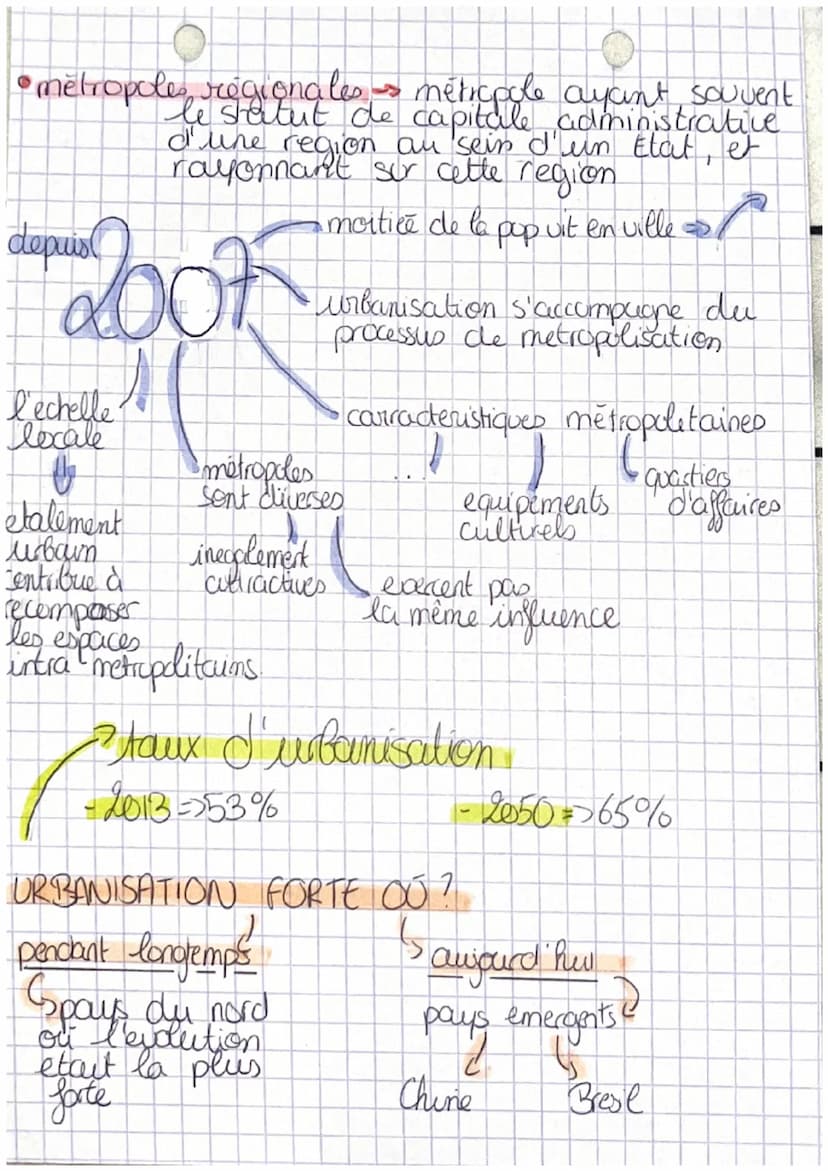 • métropoles régionales → métropole ayant souvent
le statut de capitale administrative
d'une region au sein d'un Etat, et
rayonnant sur cette region
depuis
2007
moitiée de la pop vit en ville ⇒ ↗
urbanisation s'accompagne du
processus de metropolisation
carracteristiques métropoletaines
...
equipements
culturels
quartiers
d'affaires
l'echelle
locale
etalement
urbain
contribue à
recomposer
les espaces
intra metropolitains
métropoles
sont diverses
inegalement
attractives
exercent pas
la même influence
taux d'urbanisation
- 2013 => 53%
- 2050 => 65%
URBANISATION FORTE OÙ ?
pendant longtemps
pays du nord
où l'evolution
etait la plus
forte
aujourd'hui
pays emergents
Chine
Bresil